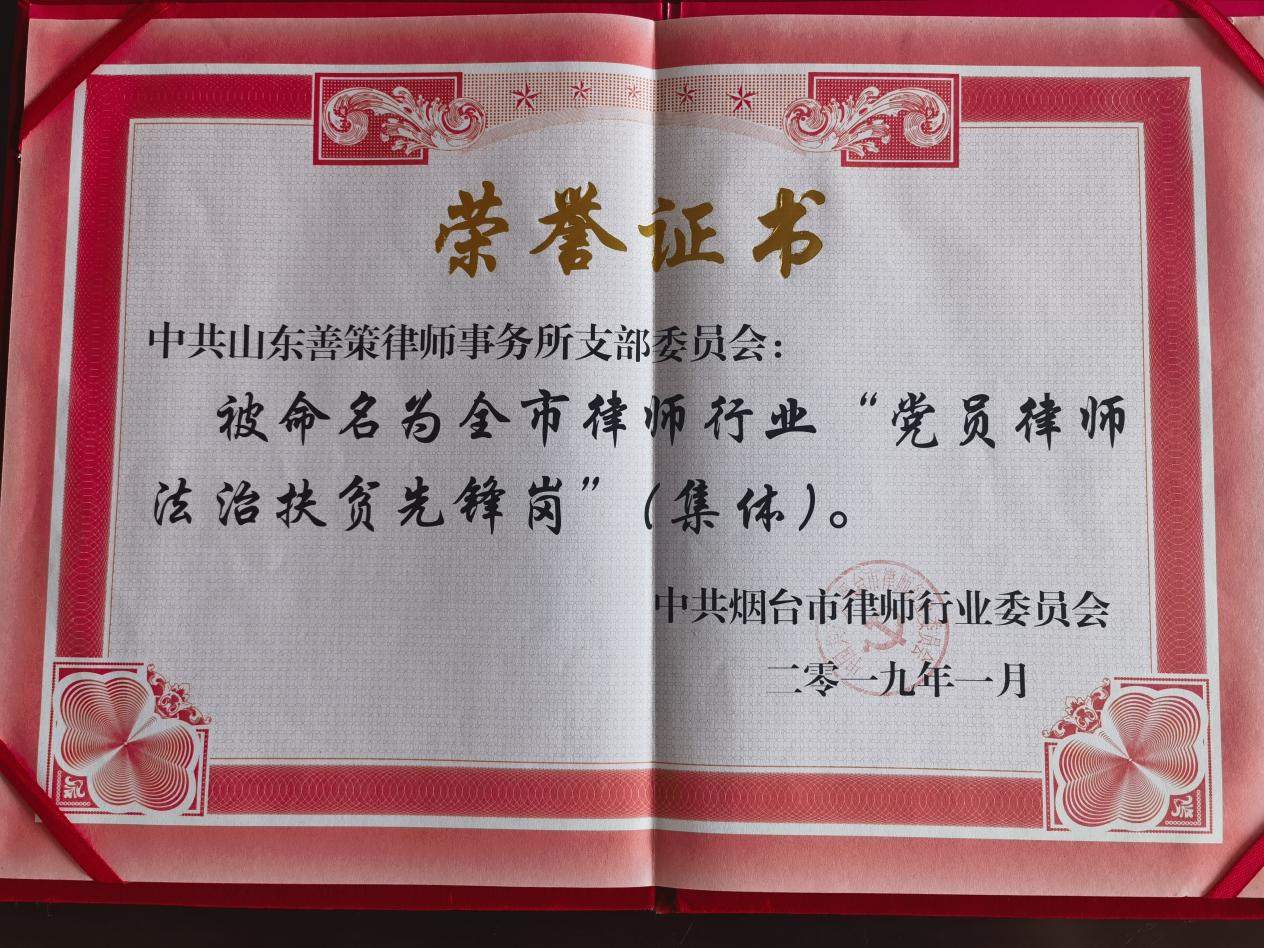 荣誉证书
中共山东善策律师事务所支部委员会：
被命名为全市律师行业“党员律师
法治扶贫先锋岗”（集体）。
中共烟台市律师行业委员会
二零一九年一月